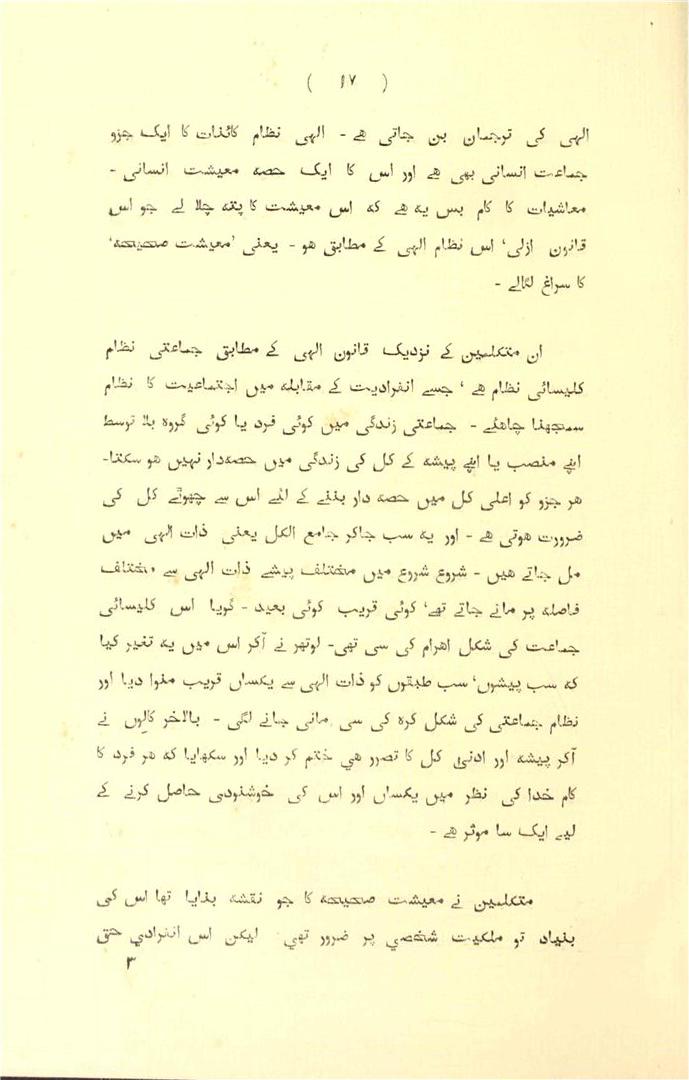 ( ۱۷ )
الہی کی ترجمان بن جاتی ھے - الہی نظام کائنات کا ایک جزو
جماعت انسانی بھی ھے اور اس کا ایک حصہ معیشت انسانی -
معاشیات کا کام بس یہ ھے کہ اس معیشت کا پتہ چلا لے جو اس
قانون ازلی، اس نظام الہی کے مطابق ھو - یعنی ’معیشت صحیحہ‘
کا سراغ لگالے -
ان متکلمین کے نزدیک قانون الہی کے مطابق جماعتی نظام
کلیسائی نظام ھے ، جسے انفرادیت کے مقابلہ میں اجتماعیت کا نظام
سمجھنا چاھئے - جماعتی زندگی میں کوئی فرد یا کوئی گروہ بلا توسط
اپنے منصب یا اپنے پیشہ کے کل کی زندگی میں حصہدار نہیں ھو سکتا-
ھر جزو کو اعلی کل میں حصہ دار بننے کے لئے اس سے چھوٹے کل کی
ضرورت ھوتی ھے - اور یہ سب جاکر جامع الکل یعنی ذات الہی میں
مل جاتے ھیں - شروع شروع میں مختلف پیشے ذات الہی سے مختلف
فاصلہ پر مانے جاتے تھے، کوئی قریب کوئی بعید - گویا اس کلیسائی
جماعت کی شکل اھرام کی سی تھی- لوتھر نے آکر اس میں یہ تغیر کیا
کہ سب پیشوں، سب طبقوں کو ذات الہی سے یکساں قریب منوا دیا اور
نظام جماعتی کی شکل کرہ کی سی مانی جانے لگی - بالآخر کالوں نے
آکر پیشہ اور ادنیٰ کل کا تصور ھی ختم کر دیا اور سکھایا کہ ھر فرد کا
کام خدا کی نظر میں یکساں اور اس کی خوشنودی حاصل کرنے کے
لیے ایک سا موثر ھے -
متکلمین نے معیشت صحیحہ کا جو نقشہ بنایا تھا اس کی
بنیاد تو ملکیت شخصی پر ضرور تھی لیکن اس انفرادی حق
۳